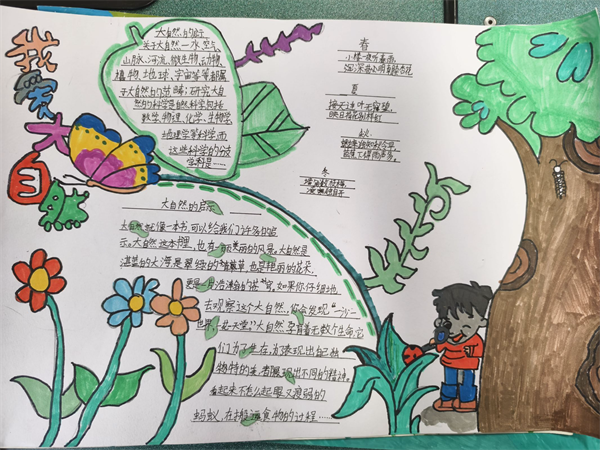 我爱大自
大自然的诗
关于大自然一水、空气、
山脉、河流、微生物、动物
植物、地球、宇宙等等都属
于大自然的范畴;研究大自
然的科学是自然科学包括
数学、物理、化学、生物学
地理学等科学,而
这些科学的分支
学科是……
春
小楼一夜听春雨,
深巷明朝卖杏花
夏
接天莲叶无穷碧,
映日荷花别样红
秋
冬
大自然的启示
大自然就像一本书,可以给我们许多的启
示。大自然这本书里,也有一丽美丽的风景。大自然是
湛蓝的大海是翠绿的,也是艳丽的花朵,
更是浩瀚的。如果你仔细地
去观察这个大自然,你会发现"一沙一
世界,一花一天堂"大自然孕育着无数个生命,它
们为了生存,为表现出自己独
特的美,都展现出不同的精神。
看起来不怎么起眼又瘦弱的
蚂蚁,在搬运食物的过程……